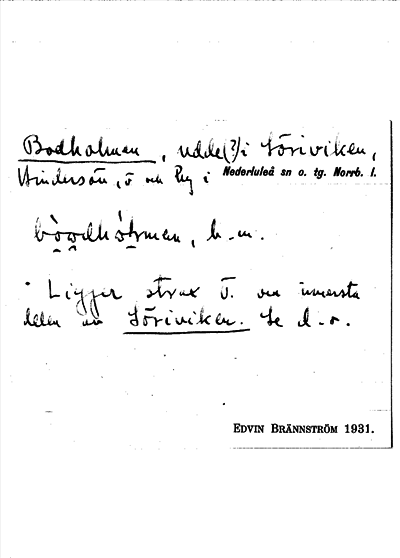 Bodholmen, udde(?) i Söriviken,
Hindersön, ö och by i Nederluleå sn o. tg. Norrb. l.
bòo̯dhól̥men, b. m.
Ligger strax Ö. om innersta
delen av Söriviken. Se d. o.
EDVIN BRÄNNSTRÖM 1931.